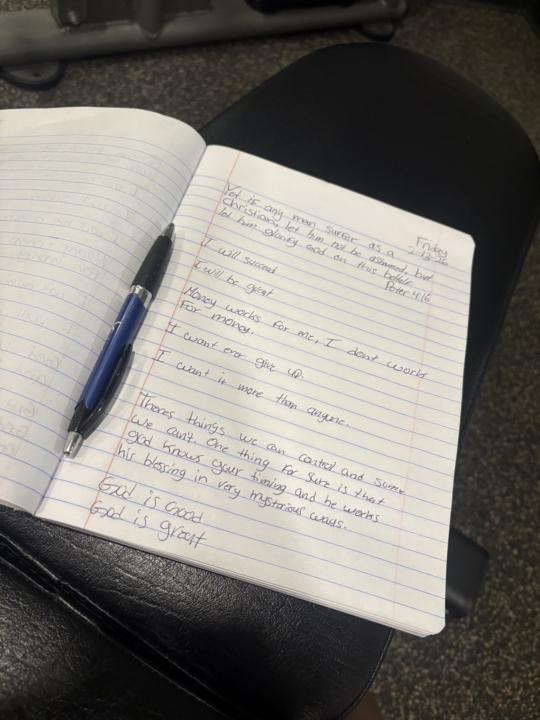 Friday
2-13-26
Yet if any man surfer as a
Christian, let him not be ashamed, but
let him glorify God on this behalf.
Peter 4:16
I will succeed
I will be great
Money works for me, I dont work
for money.
I want ever give up.
I want it more than anyone.
Theres things we can control and some
we can't. One thing for sure is that
god knows your timing and he works
his blessing in very mysterious ways.
God is Good
God is great